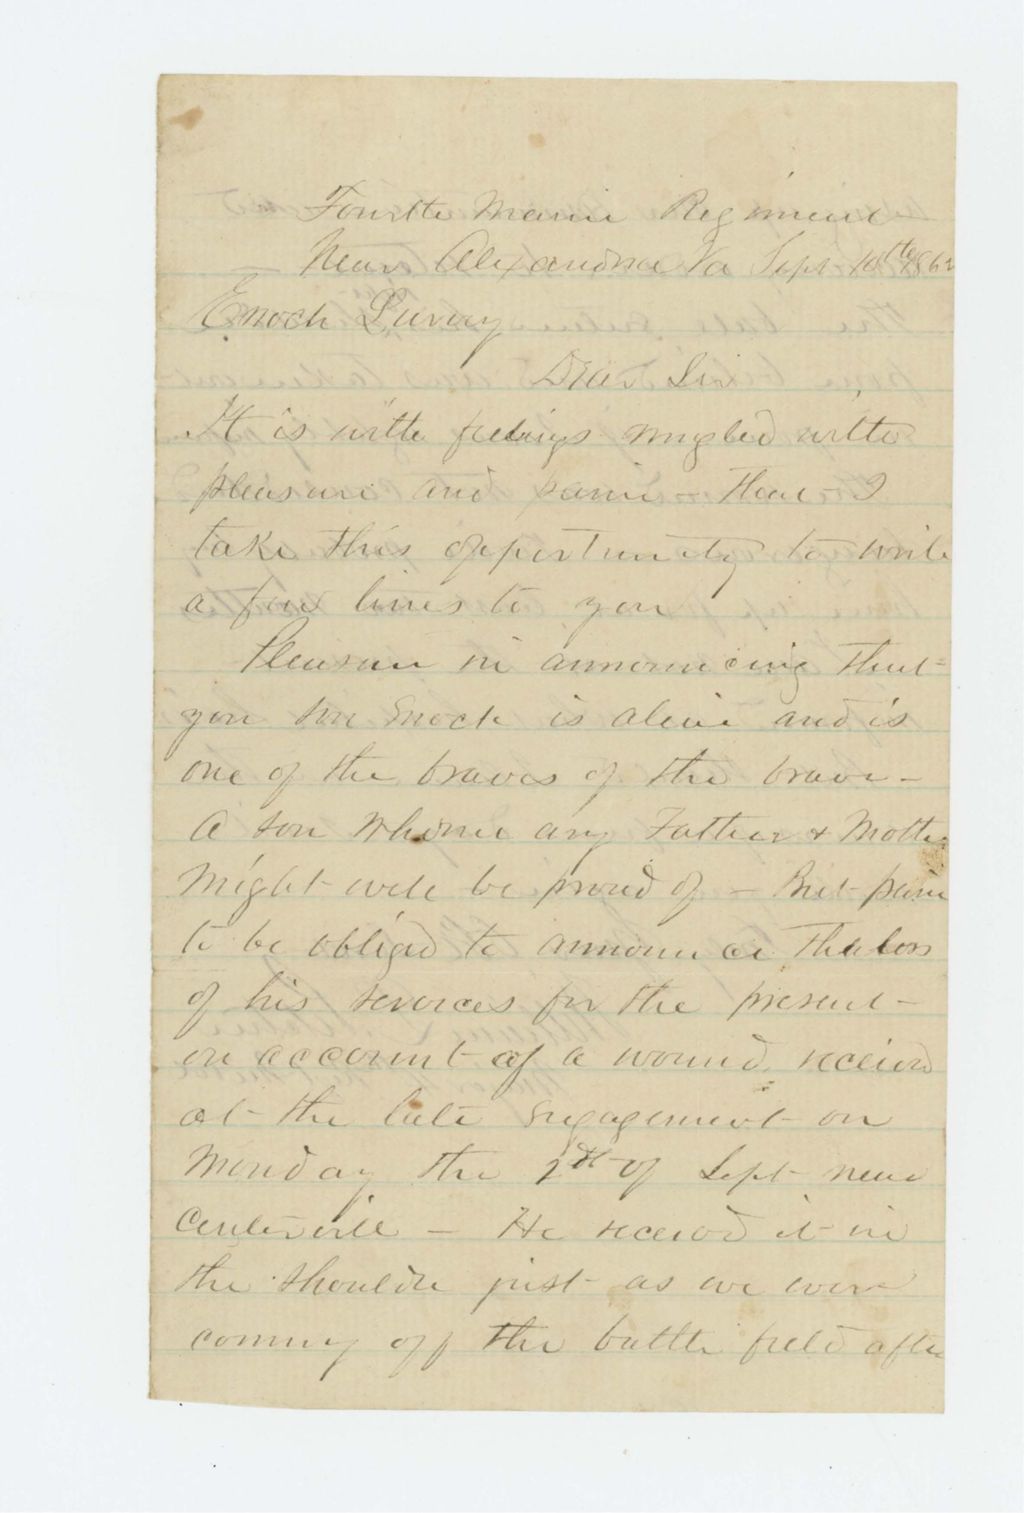 Fourth Maine Regiment
Near Alexandria Va Sept 10th 1862
Enoch
Dear Sir
It is with feelings mingled with
pleasure and pain - that - I
take this opportunity to write
a few lines to you
Pleasure in announcing that
you son Enoch is alive and is
one of the braves of the brave -
A son whome any Father & Mother
might well be proud of - But pain
to be obliged to announce the loss
of his services for the present -
on account of a wound received
at the late engagement on
Monday the of Sept near
Centerville - He received it in
the shoulder just as we were
coming off the battle field after